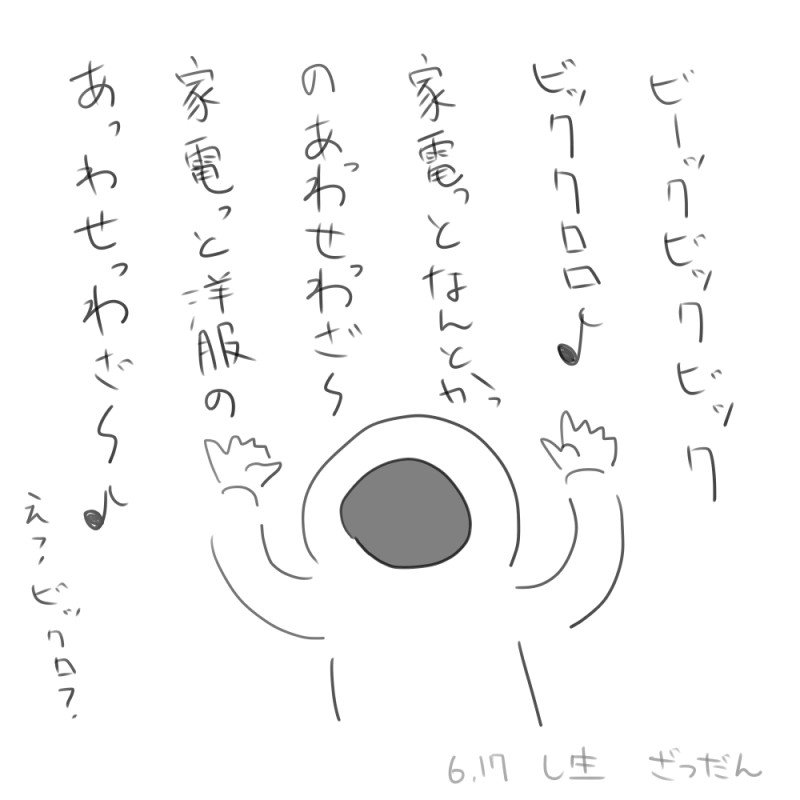 ビーックビックビック
ビッククロロ♪
家電っとなんとかっ
のあっわせっわざ〜
家電っと洋服の
あっわせっわざ〜♪
えっ?ビックロ?
6.17 し生 ざつだん